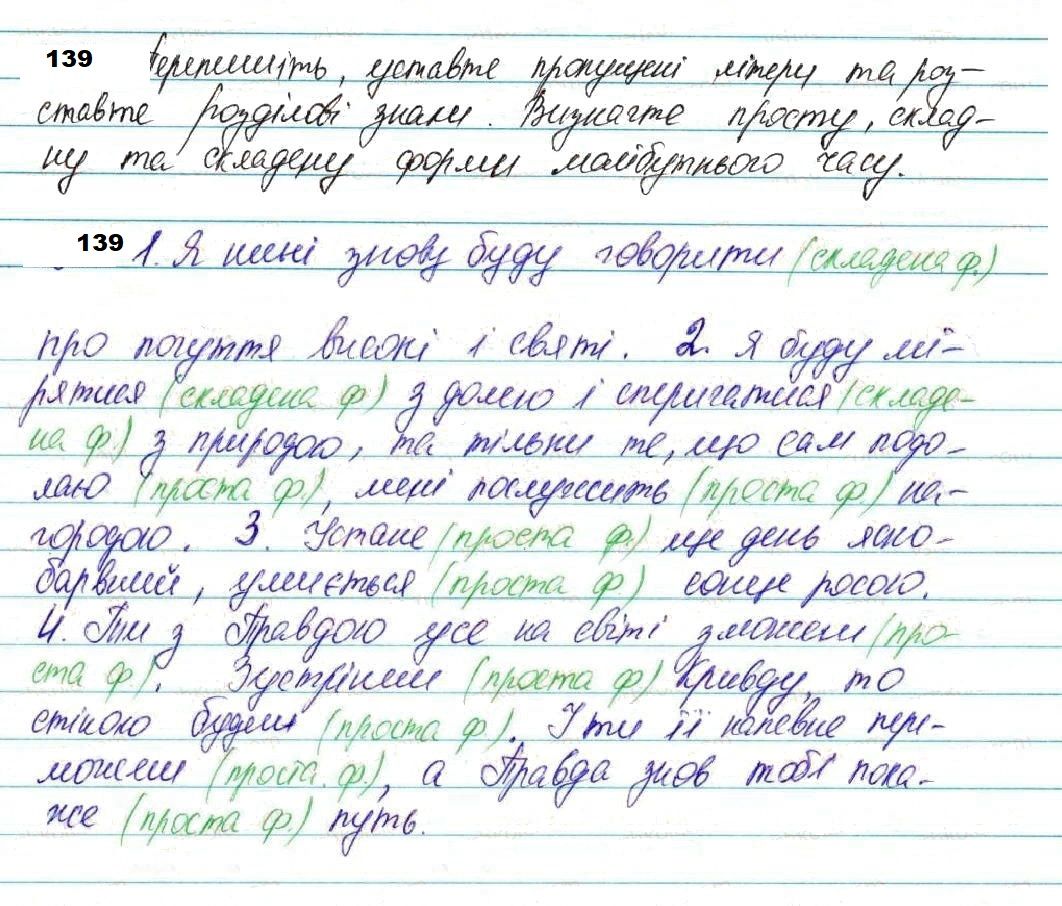 139 Перепишіть, уставте пропущені літери та роз-
ставте розділові знаки. Визначте просту, склад-
ну та складену форми майбутнього часу.
139 1. Я нині знову буду говорити (складена ф.)
про почуття високі і святі. 2. Я буду мі-
рятися (складена ф.) з долею і сперигатися (складе-
на ф.) з природою, та тільки те, що сам подо-
лаю (проста ф.), мені послужить (проста ф.) на-
городою. 3. Устане (проста ф.) ще день ясно-
барвий, умиється (проста ф.) сонце росою.
4. Ти з Правдою усе на світі зможеш (про-
ста ф.). Зустрінеш (проста ф.) Кривду, то
стіною будеш (проста ф.). І ти її напевне пере-
можеш (проста ф.), а Правда знов тобі пока-
же (проста ф.) путь.